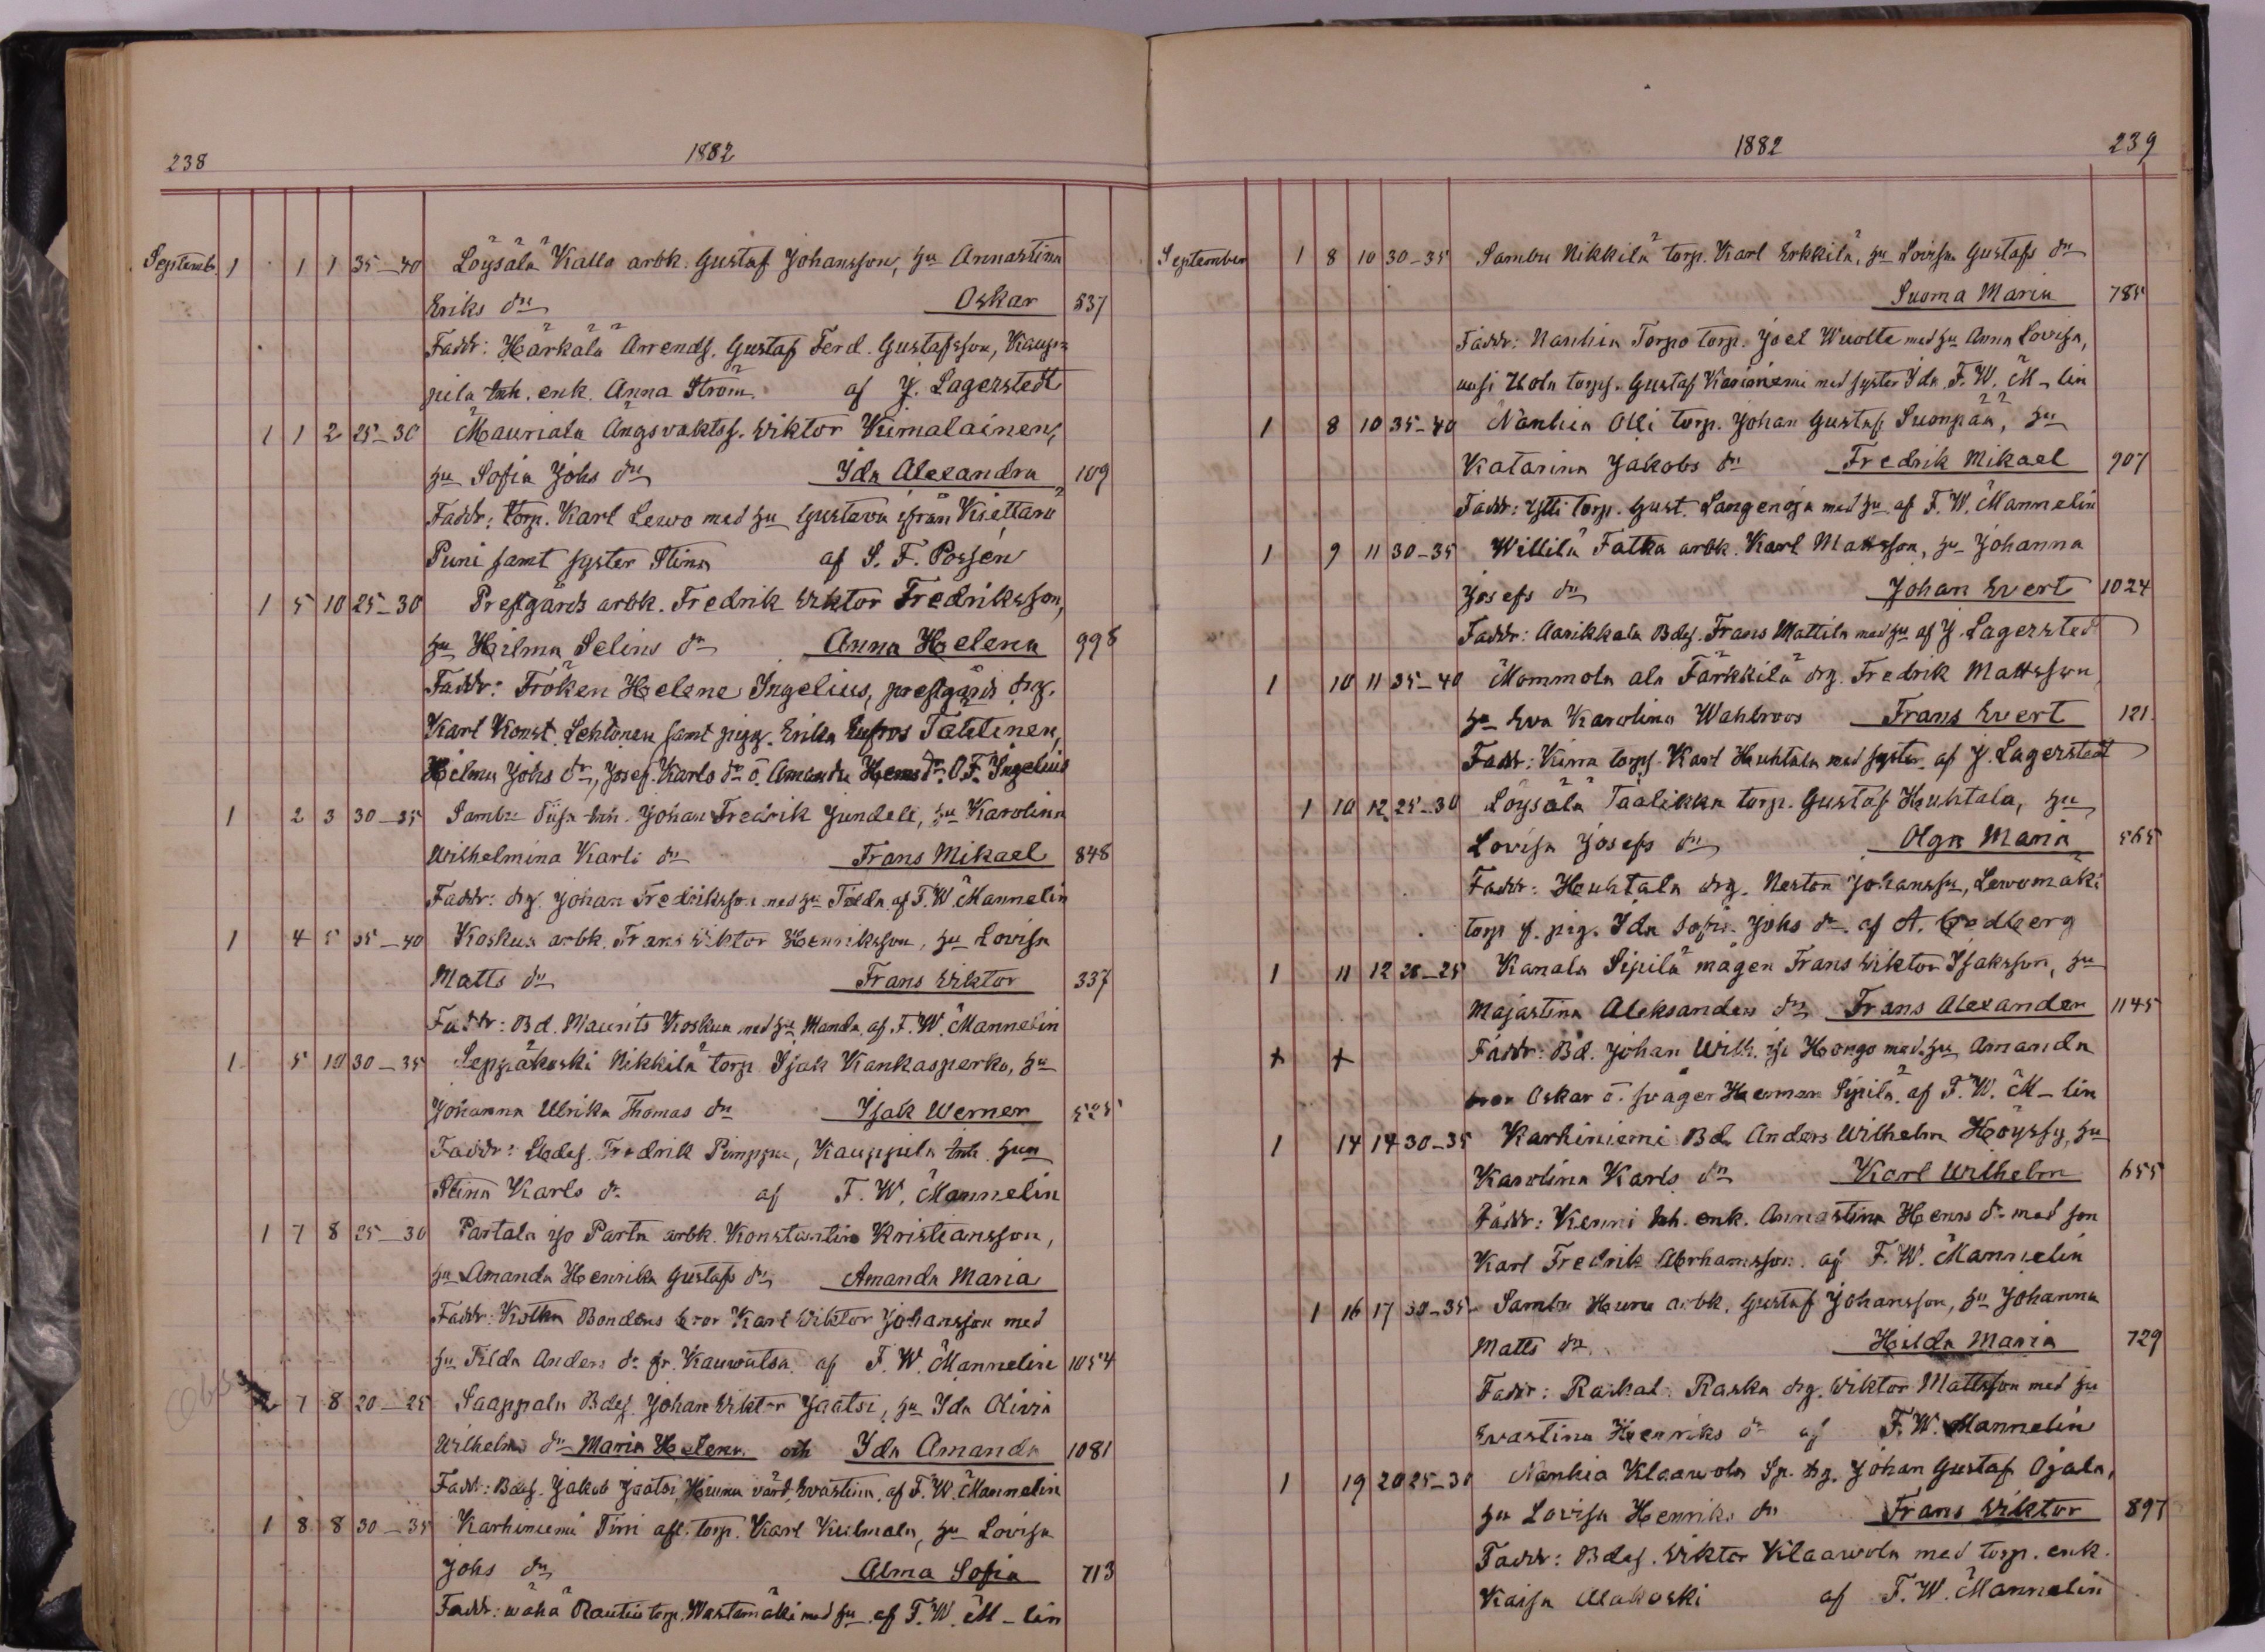 238 1882
Septemb. 1 1 1 35-40 Löysälä Kallo arbk. Gustaf Johansson, hu Annastina
Eriks dr Oskar 537
Faddr: Härkälä Arrends. Gustaf Ferd. Gustafsson, Kaup=
pila inh. enk. Anna Ström. af J. Lagerstedt
1 1 2 25-30 Mauriala Ängsvaktsf. Wiktor Kimalainen,
hu Sofia Johs dr Ida Alexandra 109
Faddr: torp. Karl Lewo med hu Gustava ifrån
Puni samt syster Stina af S. F. Possén
1 5 10 25-30 Prestgårds arbk. Fredrik Wiktor Fredriksson,
hu Hilma Selins dr Anna Helena 998
Faddr: Fröken Helene Ingelius, prestgårds drg.
Karl Konst. Lehtonen samt pigg. Erika Tähtinen,
Hilma Johs dr, Josef. Karls dr o. Amanda Henr dr. O.F. Ingelius
1 2 3 30-35 Sambu inh. Johan Fredrik Jundell, hu Karolina
Wilhelmina Karli dr Frans Mikael 848
Faddr: drg. Johan Fredriksson med hu Tilda af F. W. Mannelin
1 4 5 35-40 Koskua arbk. Frans Wiktor Henriksson, hu Lovisa
Matts dr Frans Wiktor 337
Faddr: Bd. Maurits Koskua med hu Manda af F. W. Mannelin
1 5 10 30-35 Seppäkoski Nikkilä torp. Isak Kankasperko, hu
Johanna Ulrika Thomas dr Isak Werner 525
Faddr: Fredrik Pimppu, Kauppila inh. hun
Stina Karls dr af F. W. Mannelin
1 7 8 25-30 Partala iso Parta arbk. Konstantin Kristiansson,
hu Amanda Henrika Gustafs dr Amanda Maria
Faddr: Kotka Bondens bror Karl Wiktor Johansson med
hu Tilda Anders dr fr. Kauwutsa af F. W. Mannelin 1054
Obs 2 7 8 20-25 Saappala Bdes. Johan Wiktor Jaatsi, hu Ida Olivia
Wilhelms dr Maria Helena och Ida Amanda 1081
Faddr: Bdes. Jakob Jaatsi, Evastina. af F. W. Mannelin
1 8 8 30-35 Karhiniemi Tiiri afl. torp. Karl Kulmala, hu Lovisa
Johs dr Alma Sofia 713
Faddr: wähä Rautio torp. Wastamäki med hu af F. W. M-lin
1882 239
September 1 8 10 30-35 Sambu Nikkilä torp. Karl Erkkilä, hu Lovisa Gustafs dr
Suoma Maria 785
Faddr: Nanhia Torpo torp. Joel Wuolle med hu Anna Lovisa,
uusi torps. Gustaf Karioniemi med syster Ida. F. W. M-lin
1 8 10 35-40 Nanhia Olli torp. Johan Gustaf Suonpää, hu
Katarina Jakobs dr Fredrik Mikael 907
Faddr: Ylli torp. Gust. Langenoja med hu af F. W. Mannelin
1 9 11 30-35 Willilä Fatka arbk. Karl Mattsson, hu Johanna
Josefs dr Johan Evert 1024
Faddr: Aarikkala Bdes. Frans Mattila med hu af J. Lagerstedt
1 10 11 35-40 Mommola ala Färkkilä drg. Fredrik Mattsson
hu Eva Karolina Wahlroos Frans Evert 121.
Faddr: torps. Karl Huhtala med syster. af J. Lagerstedt
1 10 12 25-30 Löysälä Taalikka torp. Gustaf Huhtala, hu
Lovisa Josefs dr Olga Maria 565
Faddr: Huhtala drg. Nestor Johansson, Lewomäki
torp. pig. Ida Sofia Johs dr. af A. Cedberg
1 11 12 20-25 Kanala Sipilä mågen Frans Wiktor Isaksson, hu
Majastina Aleksanders dr Frans Alexander 1145
+ + Faddr: Bd. Johan Wilh. iso Hongo med hu Amanda
bror Oskar o. svåger Herman Sipilä af F. W. M-lin
1 14 14 30-35 Karhiniemi Bd. Anders Wilhelm Höyssy, hu
Karolina Karls dr Karl Wilhelm 655
Faddr: Kenni inh. enk. Annastina Henrs dr med son
Karl Fredrik Abrhamsson. af F. W. Mannelin
1 16 17 30-35 Sambu arbk. Gustaf Johansson, hu Johanna
Matts dr. Hilda Maria 729
Faddr: Raikal. Raska drg. Wiktor Mattsson med hu
Evastina Henriks dr af F. W. Mannelin
1 19 20 25-30 Nanhia Klaawola Sp. drg. Johan Gustaf Ojala,
hu Lovisa Henriks dr Frans Wiktor 897
Faddr: Bdes. Wiktor Klaawola med torp. enk.
Kaisa Alakoski af F. W. Mannelin